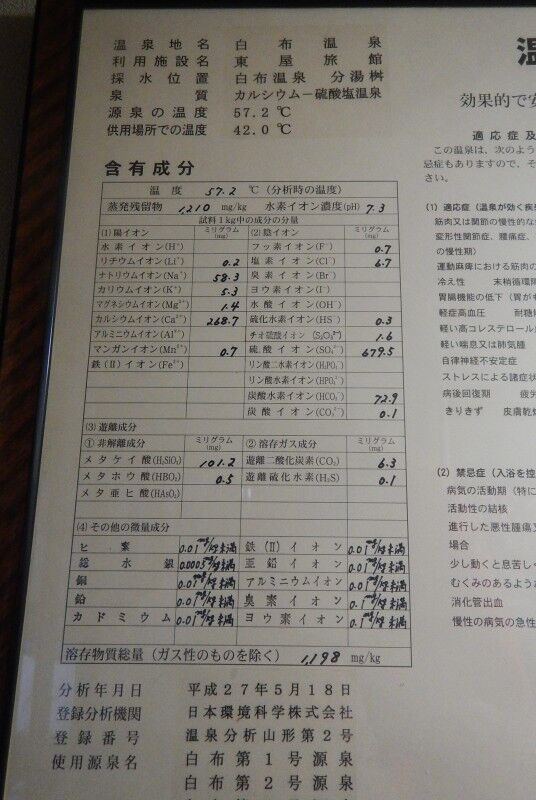 温泉地名 白布温泉
利用施設名 東屋旅館
採水位置 白布温泉 分湯桝
泉質 カルシウム－硫酸塩温泉
源泉の温度 57.2 ℃
供用場所での温度 42.0 ℃
含有成分
温度 57.2 ℃ (分析時の温度)
蒸発残留物 1,210 mg/kg 水素イオン濃度(pH) 7.3
試料1kg中の成分の分量
(1)陽イオン ミリグラム(mg) (2)陰イオン ミリグラム(mg)
水素イオン(H⁺) フッ素イオン(F⁻) 0.7
リチウムイオン(Li⁺) 0.2 塩素イオン(Cl⁻) 6.7
ナトリウムイオン(Na⁺) 58.3 臭素イオン(Br⁻)
カリウムイオン(K⁺) 5.3 ヨウ素イオン(I⁻)
マグネシウムイオン(Mg²⁺) 1.4 水酸イオン(OH⁻)
カルシウムイオン(Ca²⁺) 268.7 硫化水素イオン(HS⁻) 0.3
アルミニウムイオン(Al³⁺) チオ硫酸イオン(S₂O₃²⁻) 1.6
マンガンイオン(Mn²⁺) 0.7 硫酸イオン(SO₄²⁻) 679.5
鉄(Ⅱ)イオン(Fe²⁺) リン酸二水素イオン(H₂PO₄⁻)
リン酸水素イオン(HPO₄²⁻)
炭酸水素イオン(HCO₃⁻) 72.9
炭酸イオン(CO₃²⁻) 0.1
(3)遊離成分
① 非解離成分 ミリグラム(mg) ② 溶存ガス成分 ミリグラム(mg)
メタケイ酸(H₂SiO₃) 101.2 遊離二酸化炭素(CO₂) 6.3
メタホウ酸(HBO₂) 0.5 遊離硫化水素(H₂S) 0.1
メタ亜ヒ酸(HAsO₂)
(4)その他の微量成分
ヒ素 0.01mg/kg未満 鉄(Ⅱ)イオン 0.01mg/kg未満
総水銀 0.0005mg/kg未満 亜鉛イオン 0.01mg/kg未満
銅 0.01mg/kg未満 アルミニウムイオン 0.01mg/kg未満
鉛 0.01mg/kg未満 臭素イオン 0.1mg/kg未満
カドミウム 0.01mg/kg未満 ヨウ素イオン 0.1mg/kg未満
溶存物質総量(ガス性のものを除く) 1,198 mg/kg
分析年月日 平成27年5月18日
登録分析機関 日本環境科学株式会社
登録番号 温泉分析山形第2号
使用源泉名 白布第1号源泉
白布第2号源泉
温
効果的で安
適応症及
この温泉は、次のよう
忌症もありますので、そ
さい。
(1) 適応症 (温泉が効く疾
筋肉又は関節の慢性的な
変形性関節症、腰痛症、
の慢性期)
運動麻痺における筋肉の
冷え性 末梢循環障
胃腸機能の低下 (胃が
軽症高血圧 耐糖
軽い高コレステロール
軽い喘息又は肺気腫
自律神経不安定症
ストレスによる諸症状
病後回復期 疲労
きりきず 皮膚乾燥
(2) 禁忌症 (入浴を控
病気の活動期 (特に
活動性の結核
進行した悪性腫瘍又
場合
少し動くと息苦しく
むくみのあるような
消化管出血
慢性の病気の急性